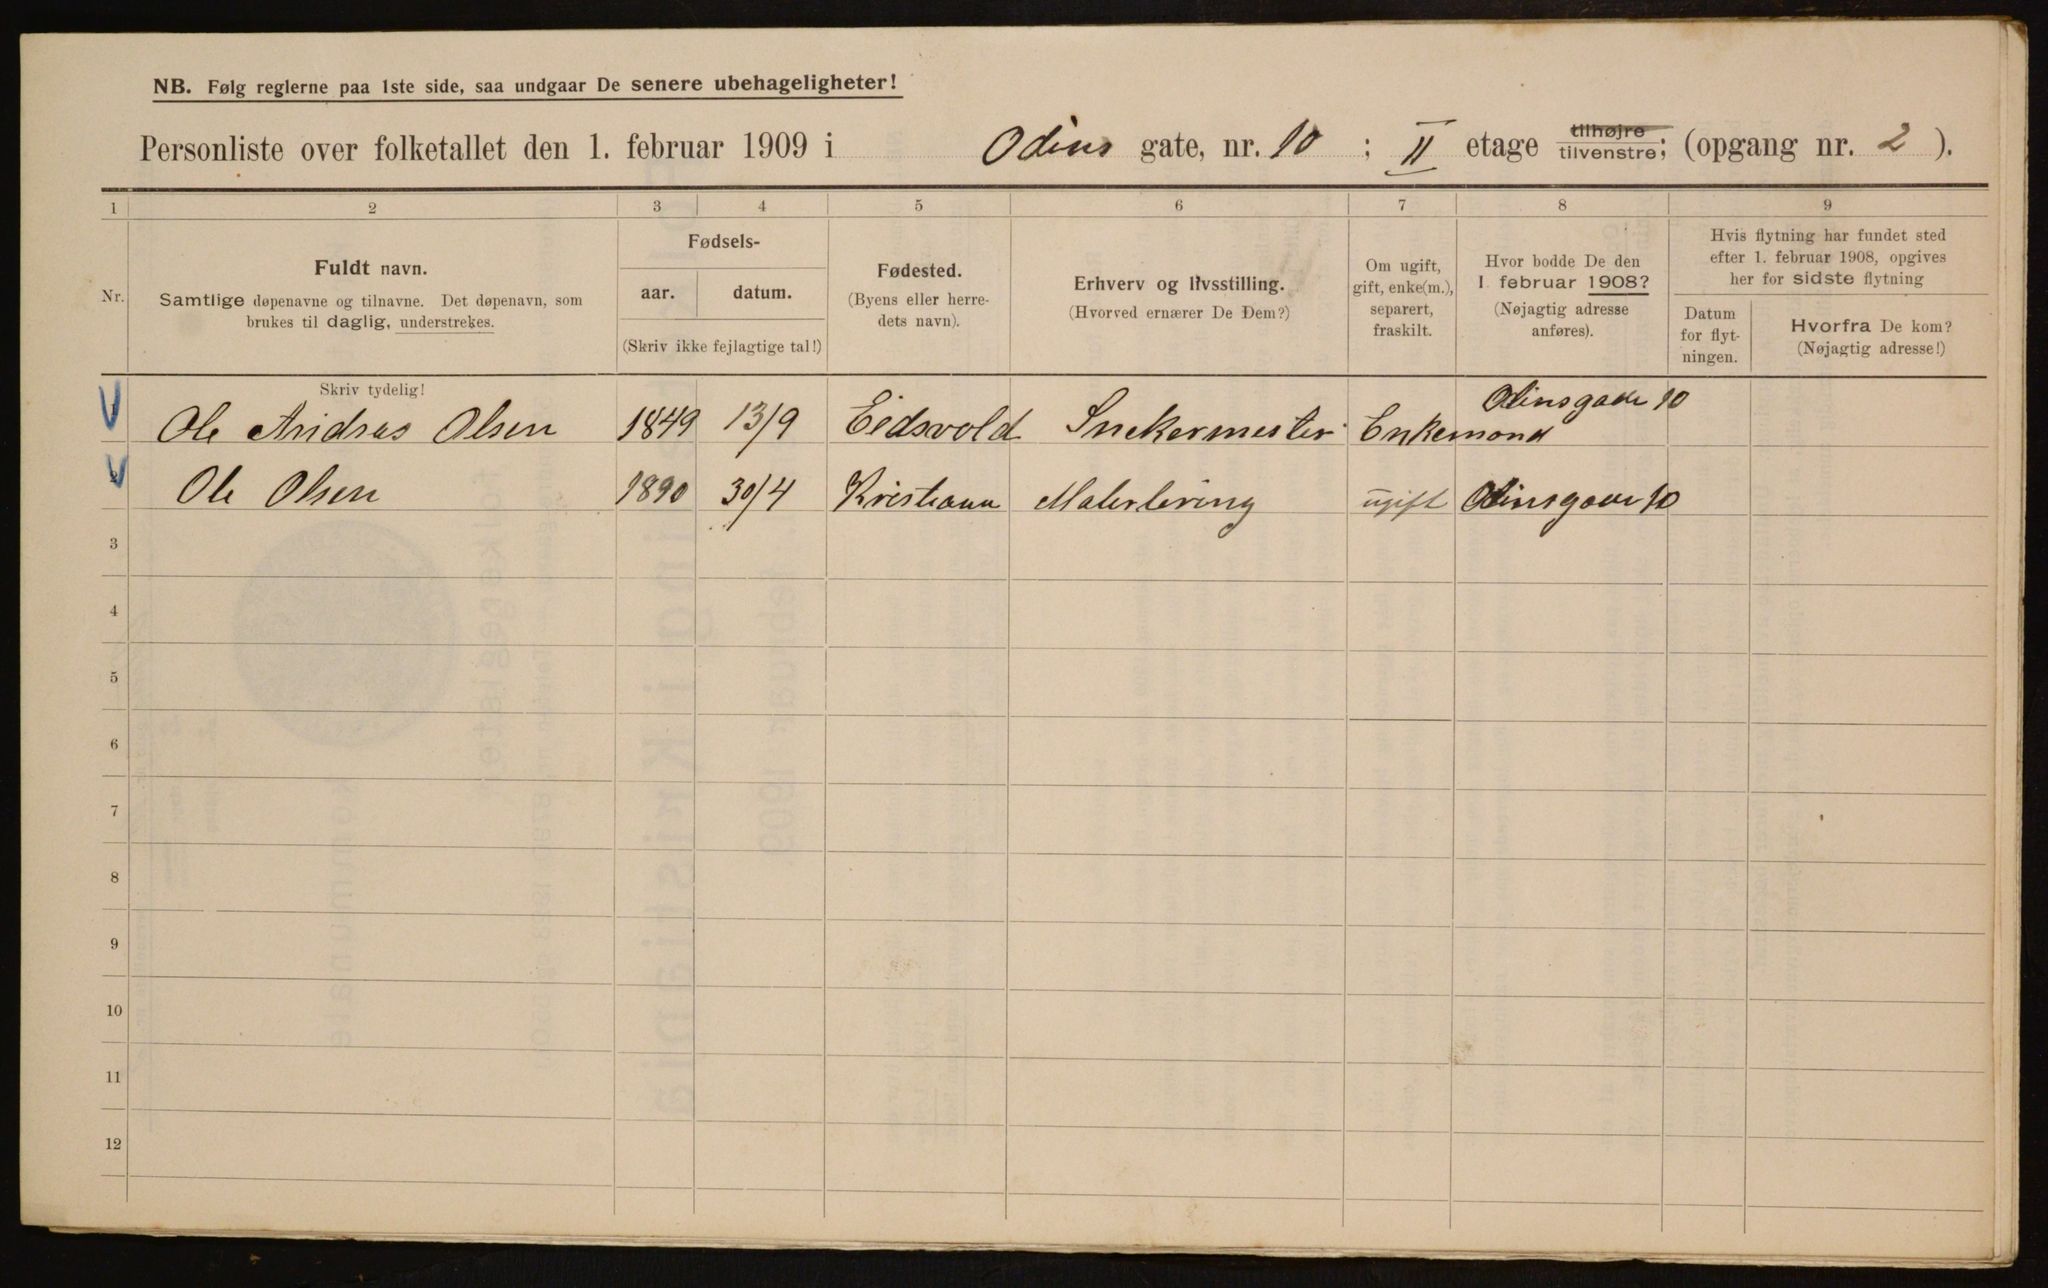 NB. Følg reglerne paa 1ste side, saa undgaar De senere ubehageligheter!
Personliste over folketallet den 1. februar 1909 i Odins gate, nr. 10 ; II etage tilhøjre tilvenstre; (opgang nr. 2 ).
1 2 3 4 5 6 7 8 9
Nr.
Fuldt navn.
Samtlige døpenavne og tilnavne. Det døpenavn, som
brukes til daglig, understrekes.
Fødsels-
aar. datum.
(Skriv ikke fejlagtige tal!)
Fødested.
(Byens eller herre-
dets navn).
Erhverv og livsstilling.
(Hvorved ernærer De Dem?)
Om ugift,
gift, enke(m.),
separert,
fraskilt.
Hvor bodde De den
1. februar 1908?
(Nøjagtig adresse
anføres).
Hvis flytning har fundet sted
efter 1. februar 1908, opgives
her for sidste flytning
Datum
for flyt-
ningen.
Hvorfra De kom?
(Nøjagtig adresse!)
Skriv tydelig!
Ole Andreas Olsen 1849 13/9 Eidsvold Snekermester Enkemand Odinsgade 10
Ole Olsen 1890 30/4 Kristiania Malerlæring ugift Odinsgade 10
3
4
5
6
7
8
9
10
11
12